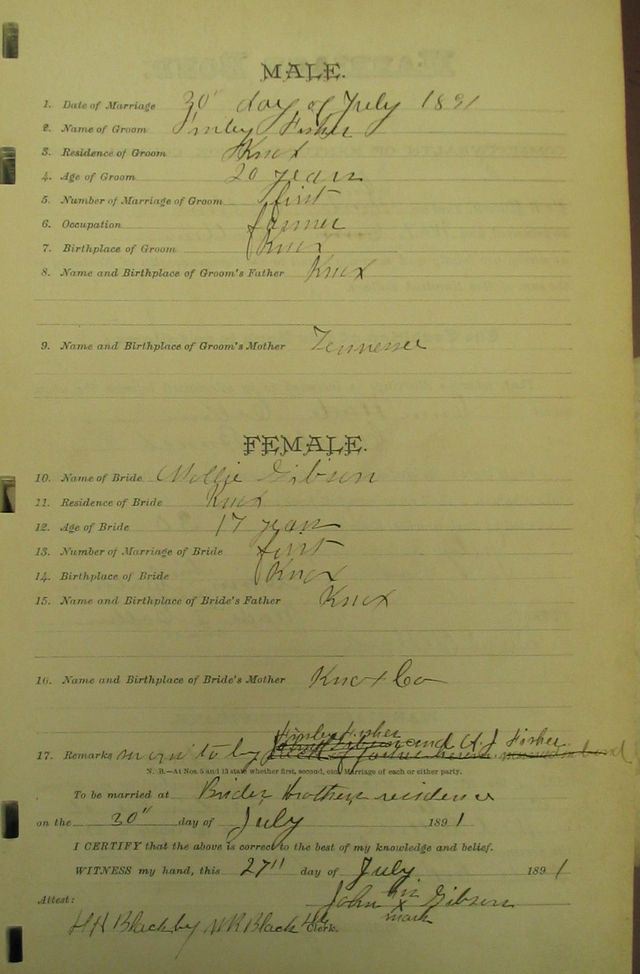 MALE.
1. Date of Marriage 30" day of July 1891
2. Name of Groom Finley Fisher
3. Residence of Groom Knox
4. Age of Groom 20 years
5. Number of Marriage of Groom first
6. Occupation farmer
7. Birthplace of Groom Knox
8. Name and Birthplace of Groom's Father Knox
9. Name and Birthplace of Groom's Mother Tennessee
FEMALE.
10. Name of Bride Mollie Gibson
11. Residence of Bride Knox
12. Age of Bride 17 years
13. Number of Marriage of Bride first
14. Birthplace of Bride Knox
15. Name and Birthplace of Bride's Father Knox
16. Name and Birthplace of Bride's Mother Knox Co
Fisher
17. Remarks sworn to by and A. J. Fisher
N. B.—At Nos. 5 and 13 state whether first, second, etc., Marriage of each or either party.
To be married at Brides brothers residence
on the 30" day of July 1891
I CERTIFY that the above is correct to the best of my knowledge and belief.
WITNESS my hand, this 27" day of July 1891
Attest: John his x mark Gibson
H H Black by W R Black Clerk.